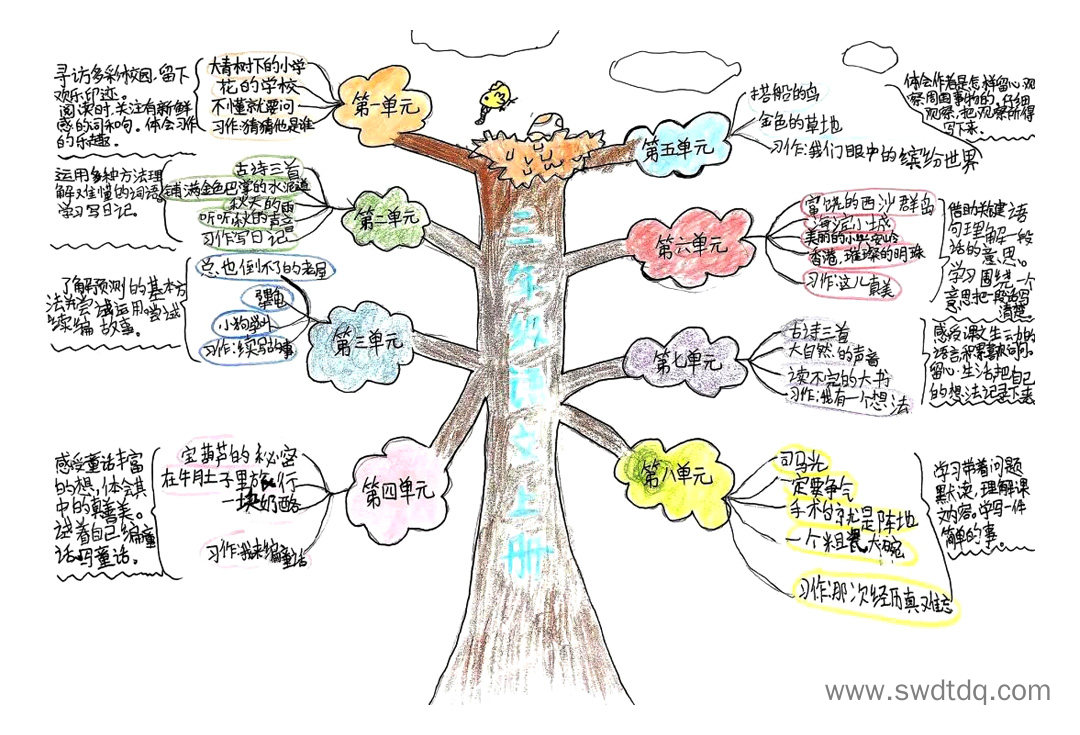 三年级语文上册
第一单元
大青树下的小学
花的学校
不懂就要问
习作:猜猜他是谁
寻访多彩校园,留下
欢乐印迹。
阅读时,关注有新鲜
感的词和句。体会习作
的乐趣。
第二单元
古诗三首
铺满金色巴掌的水泥道
秋天的雨
听听秋的声音
习作写日记
运用多种方法理
解难懂的词语,
学习写日记。
第三单元
总也倒不了的老屋
小狗学叫
习作:续写故事
了解预测的基本方
法并尝试运用,尝试
续编故事。
第四单元
宝葫芦的秘密
在牛肚子里旅行
一块奶酪
习作:我来编童话
感受童话丰富
的想,体会其
中的真善美。
试着自己编童
话,写童话。
第五单元
搭船的鸟
金色的草地
习作:我们眼中的缤纷世界
体会作者是怎样留心观
察周围事物的。仔细
观察,把观察所得
写下来。
第六单元
富饶的西沙群岛
海滨小城
美丽的小兴安岭
香港,璀璨的明珠
习作:这儿真美
借助关键语
句理解一段
话的意思。
学习围绕一个
意思把一段话写
清楚
第七单元
古诗三首
大自然的声音
读不完的大书
习作:我有一个想法
感受课文生动的
语言,积累喜欢的句。
留心生活,把自己
的想法记录下来
第八单元
司马光
一定要争气
手术台就是阵地
一个粗瓷大碗
习作:那次经历真难忘
学习带着问题
默读,理解课
文内容。学写一件
简单的事。
www.swdtdq.com